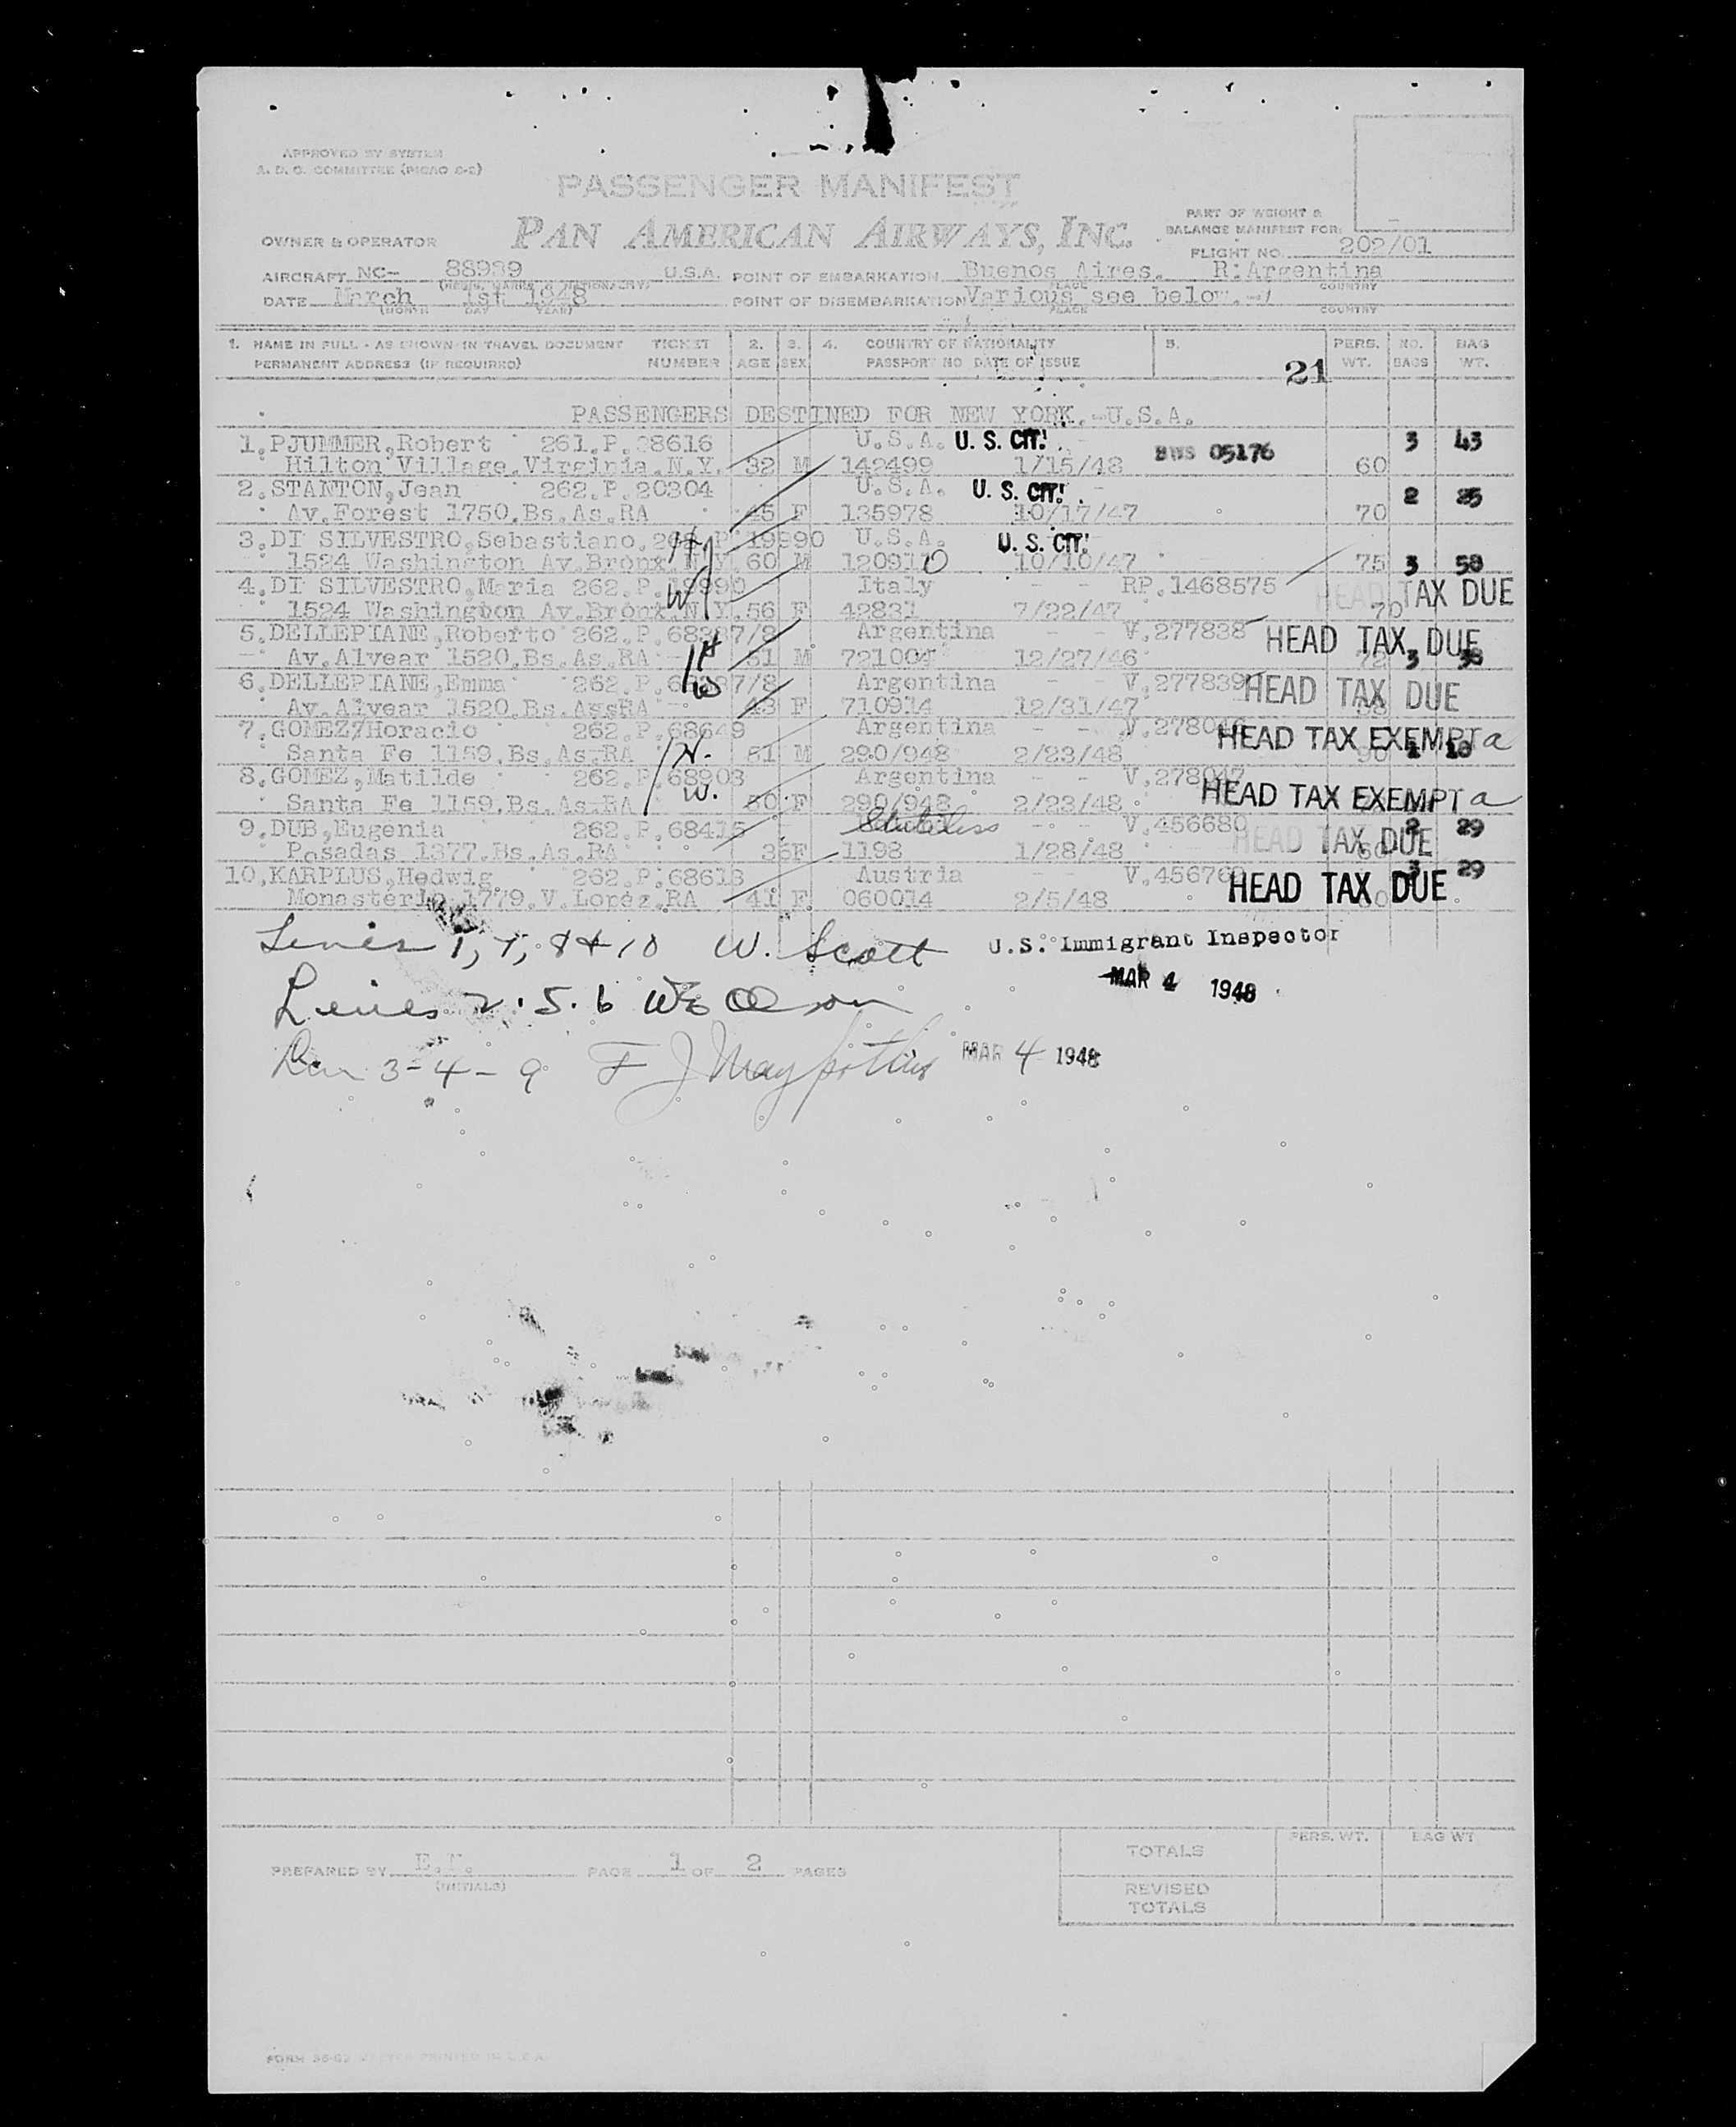 APPROVED BY SYSTEM
A. D. C. COMMITTEE (PICAO 2-2)
PASSENGER MANIFEST
PART OF WEIGHT &
BALANCE MANIFEST FOR:
OWNER & OPERATOR PAN AMERICAN AIRWAYS, INC.
FLIGHT NO. 202/01
AIRCRAFT NC- 88989 U.S.A. POINT OF EMBARKATION Buenos Aires. R:Argentina
PLACE COUNTRY
DATE March 1st 1948 POINT OF DISEMBARKATION Various see below.-
(MONTH DAY YEAR) PLACE COUNTRY
1. NAME IN FULL - AS SHOWN IN TRAVEL DOCUMENT TICKET 2. 3. 4. COUNTRY OF NATIONALITY 5. PERS. NO. BAG
PERMANENT ADDRESS (IF REQUIRED) NUMBER AGE SEX PASSPORT NO DATE OF ISSUE 21 WT. BAGS WT.
PASSENGERS DESTINED FOR NEW YORK.-U.S.A.
1.PJUMMER,Robert 261.P.28616 U.S.A. U. S. CIT! BWS 05176 3 43
Hilton Village.Virginia.N.Y. 32 M 142499 1/15/48 60
2.STANTON,Jean 262.P.20304 U.S.A. U. S. CIT! 2 25
Av.Forest 1750.Bs.As.RA 45 F 135978 10/17/47 70
3.DI SILVESTRO,Sebastiano. P 19990 U.S.A. U. S. CIT!
1524 Washington Av.Bronx.N.Y. 60 M 120911 0 10/10/47 75 3 58
4.DI SILVESTRO,Maria 262.P.19990 Italy - - RP.1468575 HEAD TAX DUE
1524 Washington Av.Bronx.N.Y. 56 F 42831 7/22/47 70
5.DELLEPIANE,Roberto 262.P.68387/8 Argentina - - V.277838 HEAD TAX DUE
Av.Alvear 1520.Bs.As.RA 51 M 12/27/46 72 3 38
6.DELLEPIANE,Emma 262.P. 7/8 Argentina - - V.277839 HEAD TAX DUE
Av.Alvear 1520.Bs.As.RA 43 F 710914 12/31/47
7.GOMEZ,Horacio 262.P.68649 Argentina - - HEAD TAX EXEMPT a
Santa Fe 1159.Bs.As.RA H. 61 M 290/948 2/23/48 90 1 10
8.GOMEZ,Matilde 262.P.68903 Argentina - - V.278047 HEAD TAX EXEMPT a
Santa Fe 1159.Bs.As.RA W. 50 F 290/948 2/23/48
9.DUB,Eugenia 262.P.68415 Stateless - - V.456680 HEAD TAX DUE 2 29
Posadas 1377.Bs.As.RA 36F 1198 1/28/48
10.KARPLUS,Hedwig 262.P.68618 Austria - - HEAD TAX DUE 3 29
Monasterio 1779.V.Lopez.RA 41 F 060014 2/5/48
Lines 1, 7, 8 & 10 W. Scott U.S. Immigrant Inspector
MAR 4 1948
Lines 2.5.6 Olson
3-4-9 F J MAR 4 1948
TOTALS PERS. WT. BAG WT
PREPARED BY (INITIALS) PAGE 1 OF 2 PAGES
REVISED
TOTALS